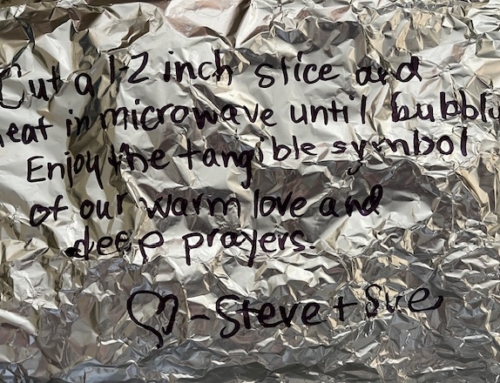 Cut a 1-2 inch slice and
heat in microwave until bubbly
Enjoy the tangible symbol
of our warm love and
deep prayers.
♡ - Steve + Sue